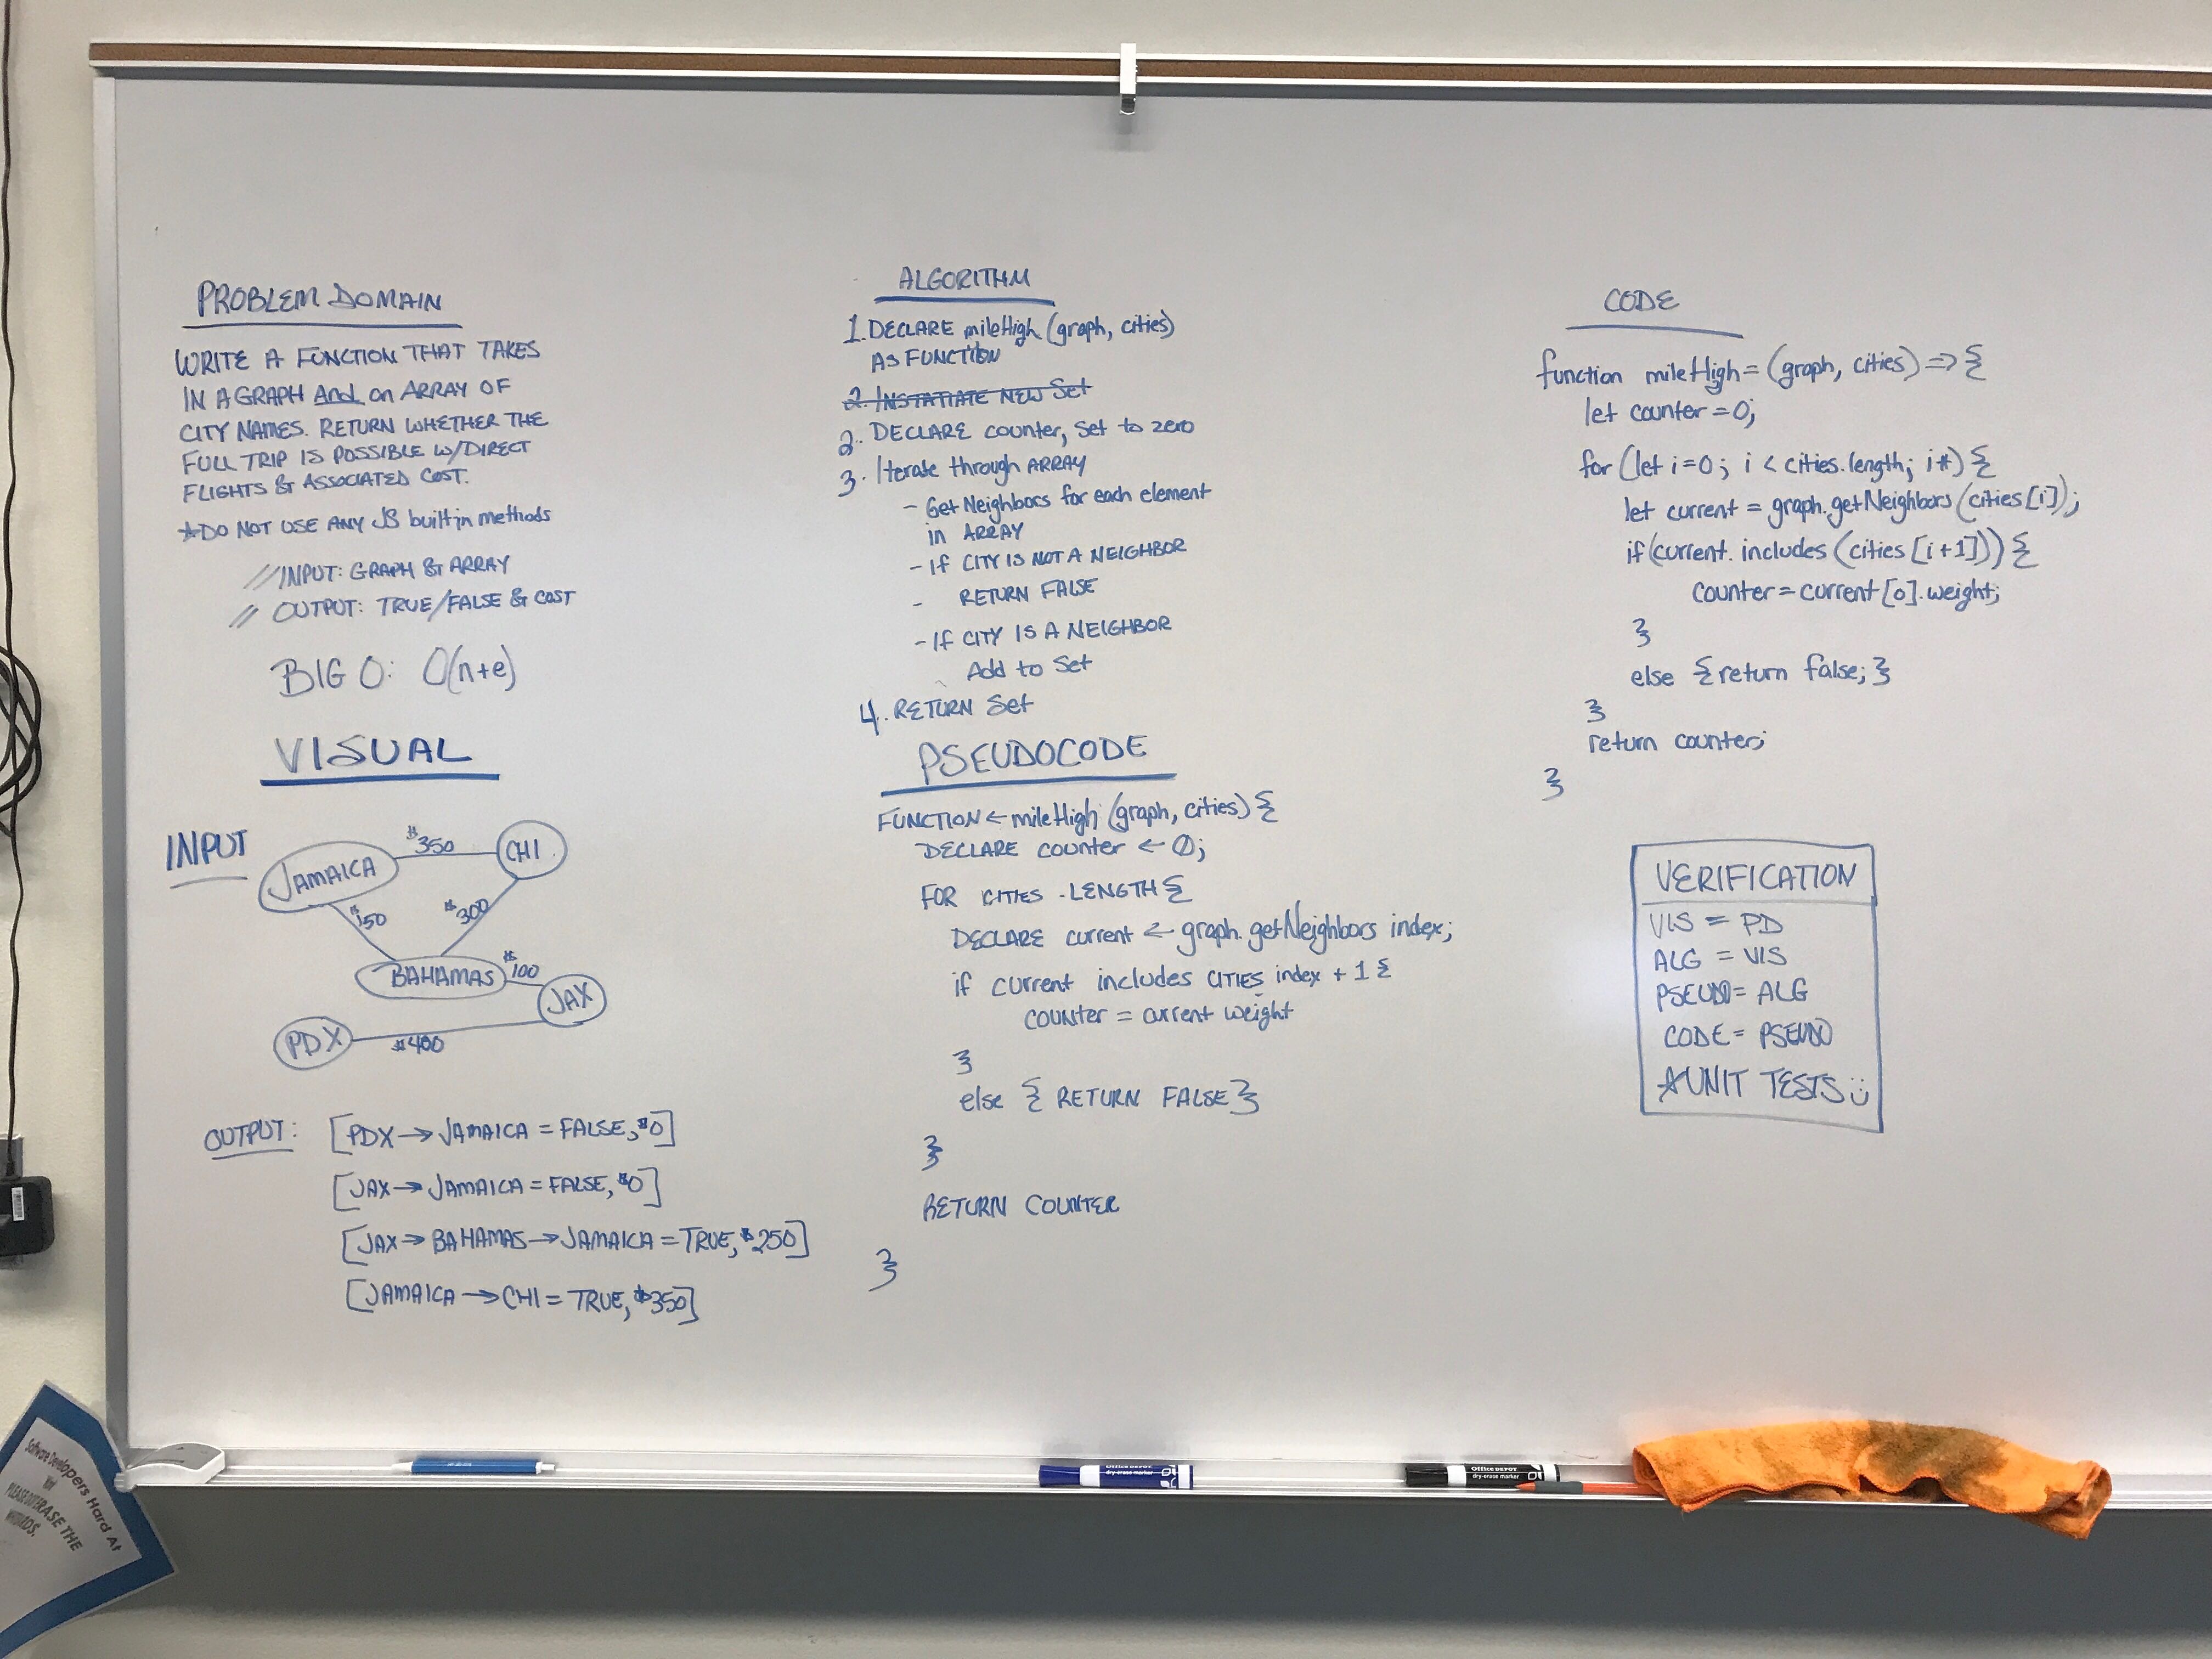 PROBLEM DOMAIN
WRITE A FUNCTION THAT TAKES
IN A GRAPH And an ARRAY OF
CITY NAMES. RETURN WHETHER THE
FULL TRIP IS POSSIBLE W/DIRECT
FLIGHTS & ASSOCIATED COST.
*DO NOT USE ANY JS built-in methods
// INPUT: GRAPH & ARRAY
// OUTPUT: TRUE/FALSE & COST
BIG O: O(n+e)
VISUAL
INPUT
JAMAICA
$350
CHI
$150
$300
BAHAMAS
$100
JAX
PDX
$400
OUTPUT:
[PDX → JAMAICA = FALSE, $0]
[JAX → JAMAICA = FALSE, $0]
[JAX → BAHAMAS → JAMAICA = TRUE, $250]
[JAMAICA → CHI = TRUE, $350]
ALGORITHM
1. DECLARE mileHigh (graph, cities)
AS FUNCTION
2. INSTATIATE NEW Set
2. DECLARE counter, Set to zero
3. Iterate through ARRAY
- Get Neighbors for each element
in ARRAY
- If CITY IS NOT A NEIGHBOR
- RETURN FALSE
- If CITY IS A NEIGHBOR
Add to Set
4. RETURN Set
PSEUDOCODE
FUNCTION ← mileHigh (graph, cities) {
DECLARE counter ← 0;
FOR CITIES .LENGTH {
DECLARE current ← graph.getNeighbors index;
if current includes CITIES index + 1 {
counter = current weight
}
else { RETURN FALSE }
}
RETURN COUNTER
}
CODE
function mileHigh = (graph, cities) => {
let counter = 0;
for (let i=0; i < cities.length; i++) {
let current = graph.getNeighbors(cities[i]);
if (current.includes (cities [i+1])) {
counter = current[0].weight;
}
else { return false; }
}
return counter;
}
VERIFICATION
VIS = PD
ALG = VIS
PSEUDO = ALG
CODE = PSEUDO
*UNIT TESTS :)
Software Developers Hard At
PLEASE DO
ERASE THE
OFFICE DEPOT
dry-erase marker
OFFICE DEPOT
dry-erase marker